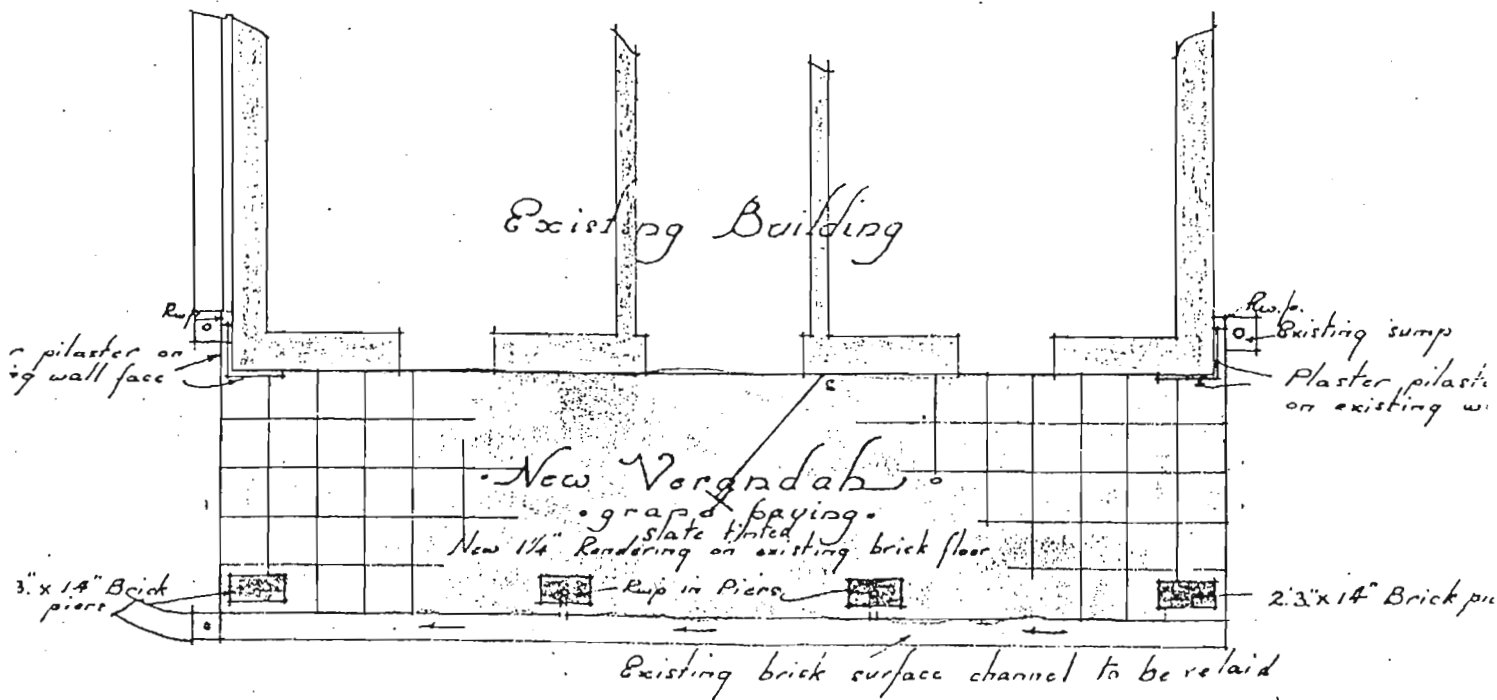 Existing Building
Rwp
pilaster on
wall face
R.w.p.
Existing sump
Plaster pilast
on existing w
New Verandah
grano paving.
slate tinted
New 1¼" Rendering on existing brick floor
3" x 14" Brick
piers
Rwp in Piers
2'.3" x 14" Brick pie
Existing brick surface channel to be relaid